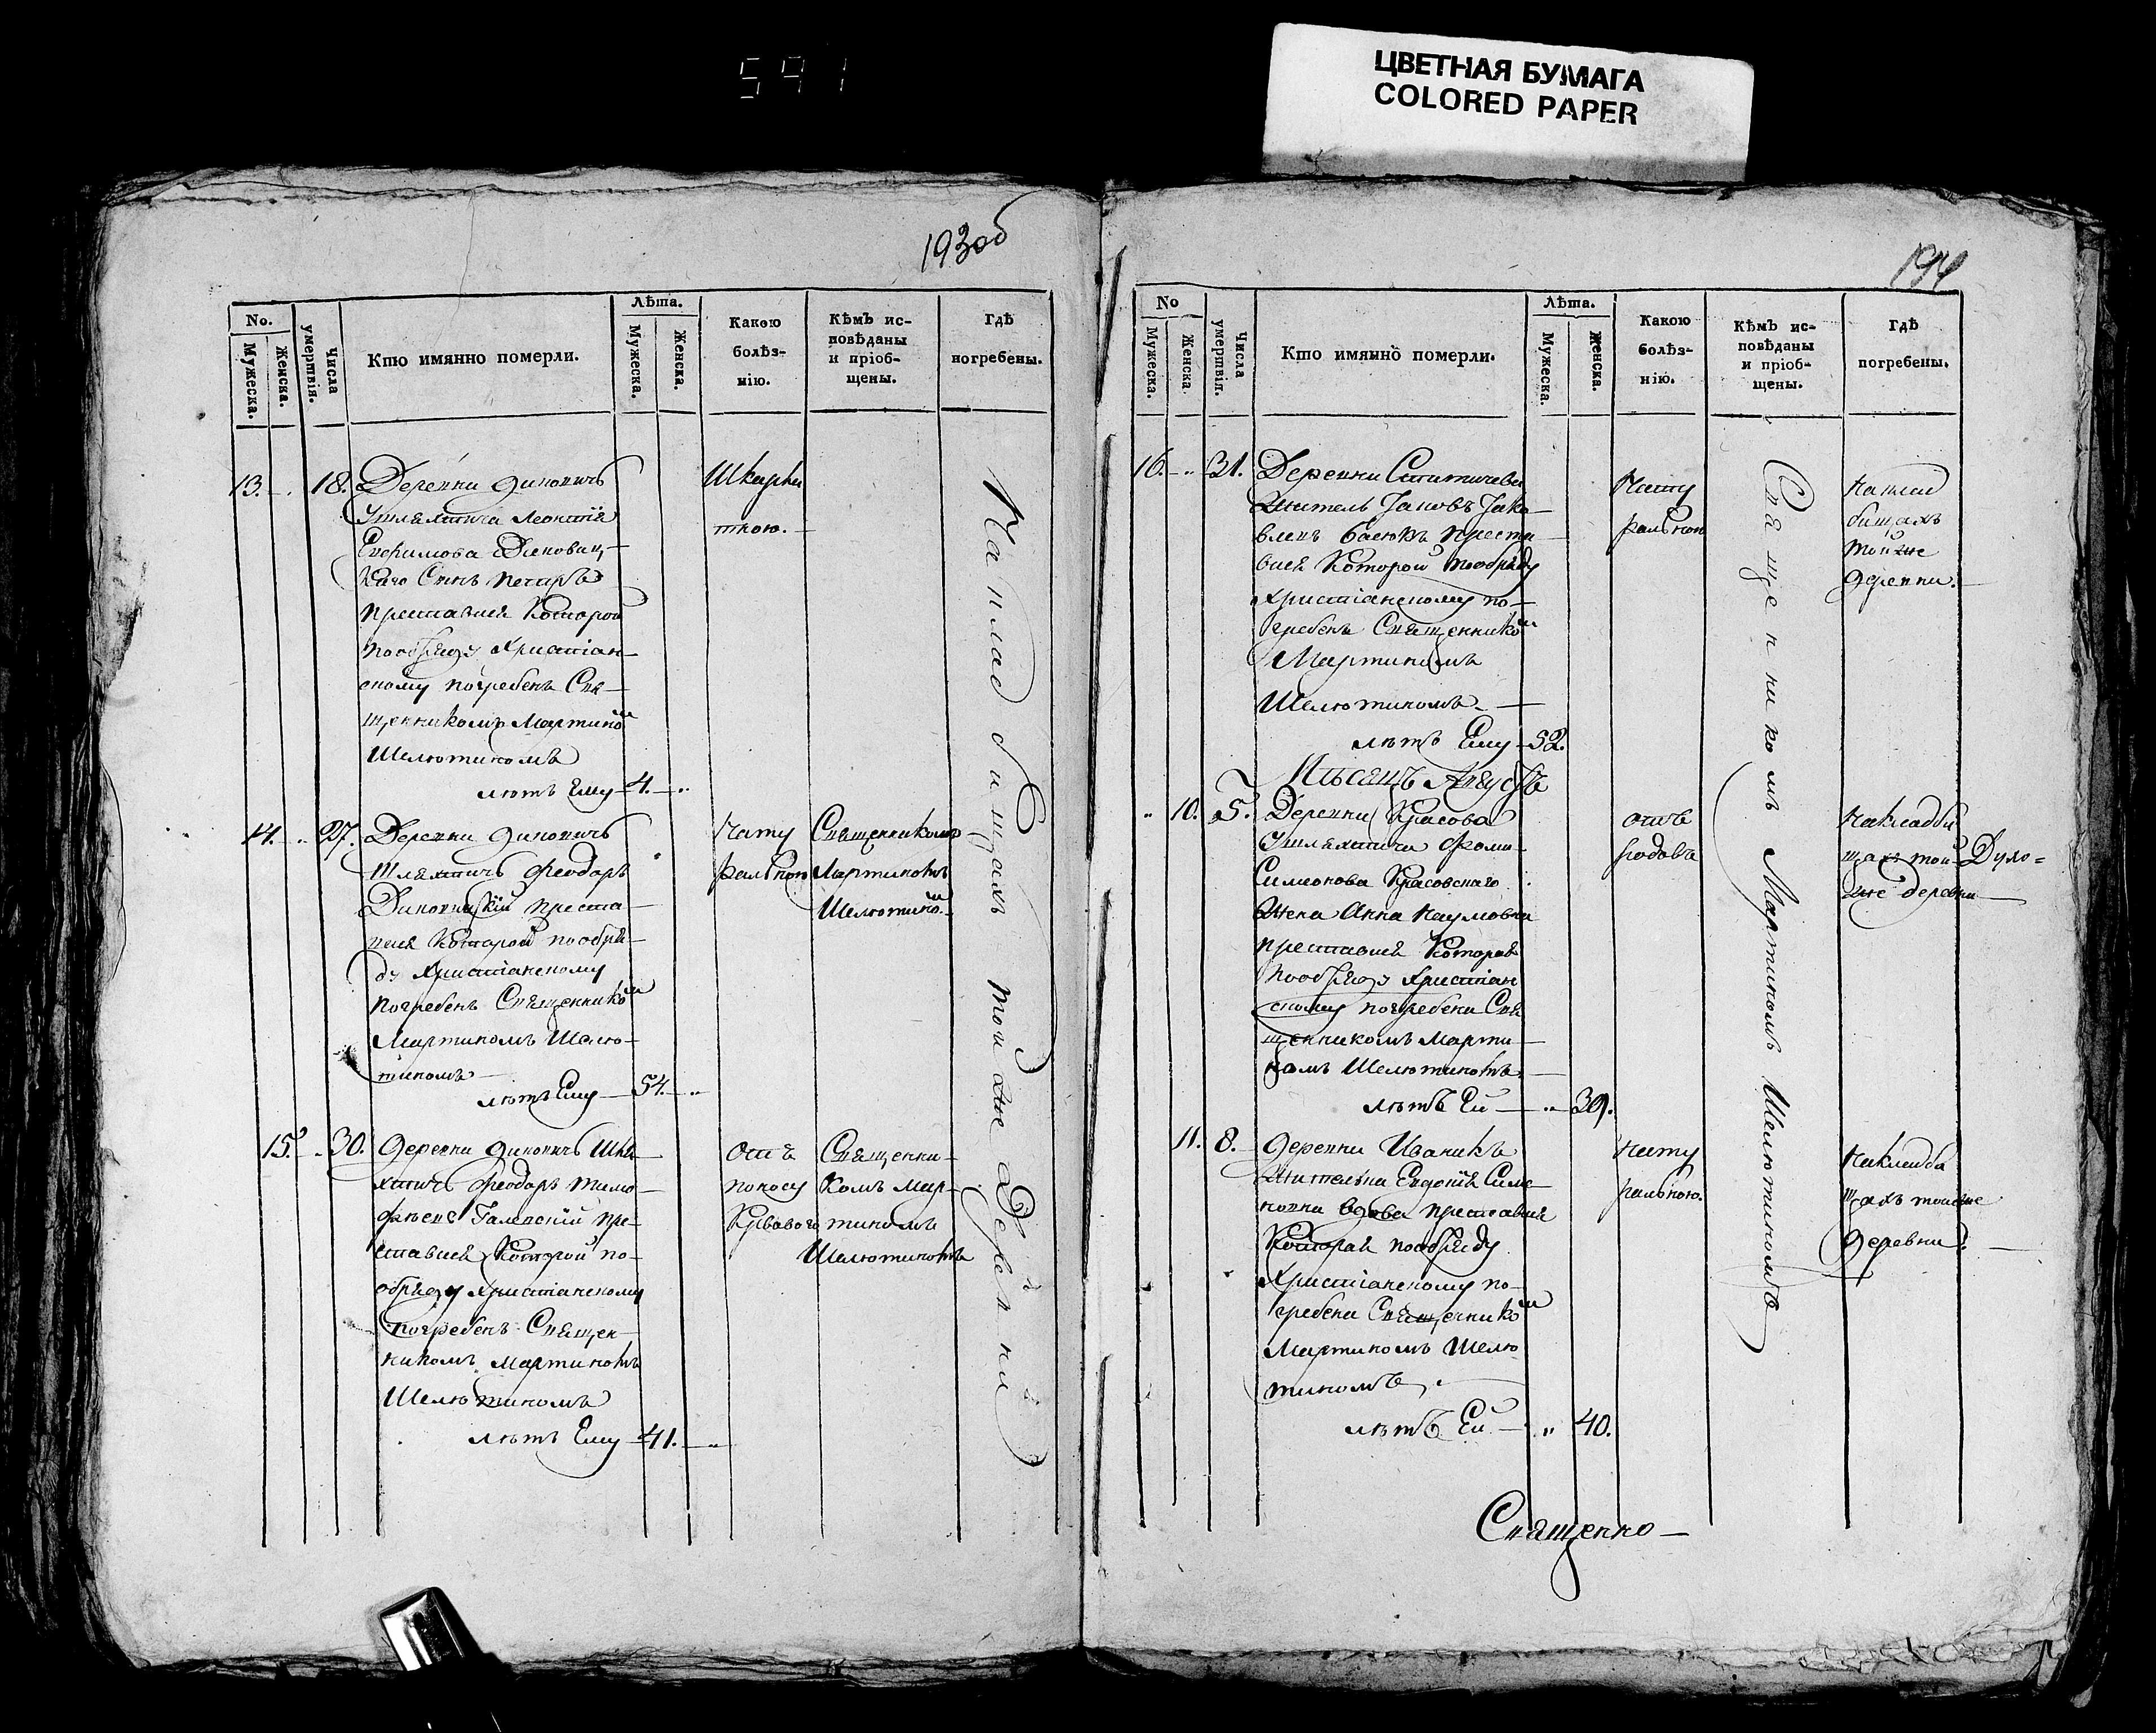 591
ЦВЕТНАЯ БУМАГА
COLORED PAPER
193об
No.
Мужеска.
Женска.
Числа умертвія.
Кто имянно померли.
Лѣта.
Мужеска.
Женска.
Какою
болѣз-
нію.
Кѣмъ ис-
повѣданы
и пріоб-
щены.
Гдѣ
погребены.
13.
18.
Деревни Диновичъ
Шляхтича Леонтія
Ефримова Диновиц-
каго Сынъ
преставися Которой
пообряду Христіан-
скому погребенъ Свя-
щенникомъ Мартиномъ
Шелютиномъ
лѣтъ Ему 4.
14.
27.
Деревни Диновичъ
Шляхтичъ Феодоръ
Диновицкій преста-
вися Которой пообря-
ду Христіанскому
погребенъ Священникомъ
Мартиномъ Шелю-
тиномъ
лѣтъ Ему 54.
Нату
ральною
Священникомъ
Мартиномъ
Шелютиномъ
15.
30.
Деревни Диновичъ Шля-
хтичъ Феодоръ Тимо-
фѣевъ Галевскій пре-
ставися Которой по-
обряду Христіанскому
погребенъ Священ-
никомъ Мартиномъ
Шелютиномъ
лѣтъ Ему 41.
отъ
поносу
Кровавого
Священни-
комъ Мар-
тиномъ
Шелютиномъ
На кладбищахъ той же Деревни
194
No
Мужеска.
Женска.
Числа умертвія.
Кто имянно померли.
Лѣта.
Мужеска.
Женска.
Какою
болѣз-
нію.
Кѣмъ ис-
повѣданы
и пріоб-
щены.
Гдѣ
погребены.
16.
31.
Деревни
Житель Іаковъ Іако-
влевъ преста-
вися Которой пообряду
Христіанскому по-
гребенъ Священникомъ
Мартиномъ
Шелютиномъ
лѣтъ Ему 52.
Нату
ральною
На клад
бищахъ
той же
деревни.
Мѣсяцъ Августъ
10.
5.
Деревни Красова
Шляхтича Фомы
Симонова Красовскаго
Жена Анна Наумовна
преставися Которая
пообряду Христіан
скому погребена Свя
щенникомъ Марти-
номъ Шелютиномъ
лѣтъ Ей 39.
отъ
родовъ
На кладби
щахъ той
же деревни
11.
8.
деревни Иваникъ
Жителька Евдокія Симо
новна вдова преставися
Которая пообряду
Христіанскому по-
гребена Священникомъ
Мартиномъ Шелю
тиномъ
лѣтъ Ей 40.
Нату
ральною.
На кладби
щахъ той же
Деревни.
Священникомъ Мартиномъ Шелютиномъ
Священно-